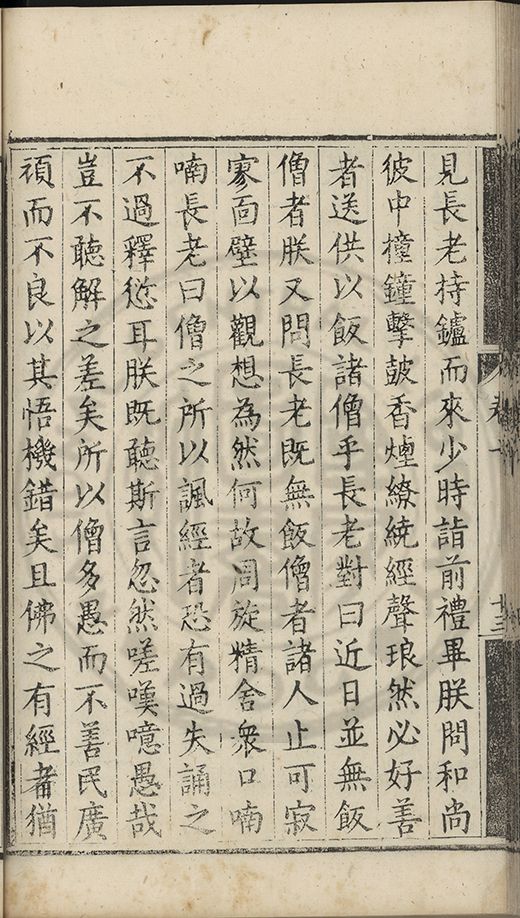 見長老持鑪而來少時詣前禮畢朕問和尚
彼中撞鐘擊皷香煙繚繞經聲琅然必好善
者送供以飯諸僧乎長老對曰近日並無飯
僧者朕又問長老既無飯僧者諸人止可寂
寥面壁以觀想為然何故周旋精舍衆口喃
喃長老曰僧之所以諷經者恐有過失誦之
不過釋愆耳朕既聽斯言忽然嗟嘆噫愚哉
豈不聽解之差矣所以僧多愚而不善民廣
頑而不良以其悟機錯矣且佛之有經者猶